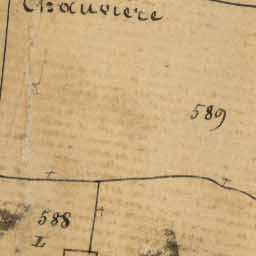 Chauviere
589
588
L